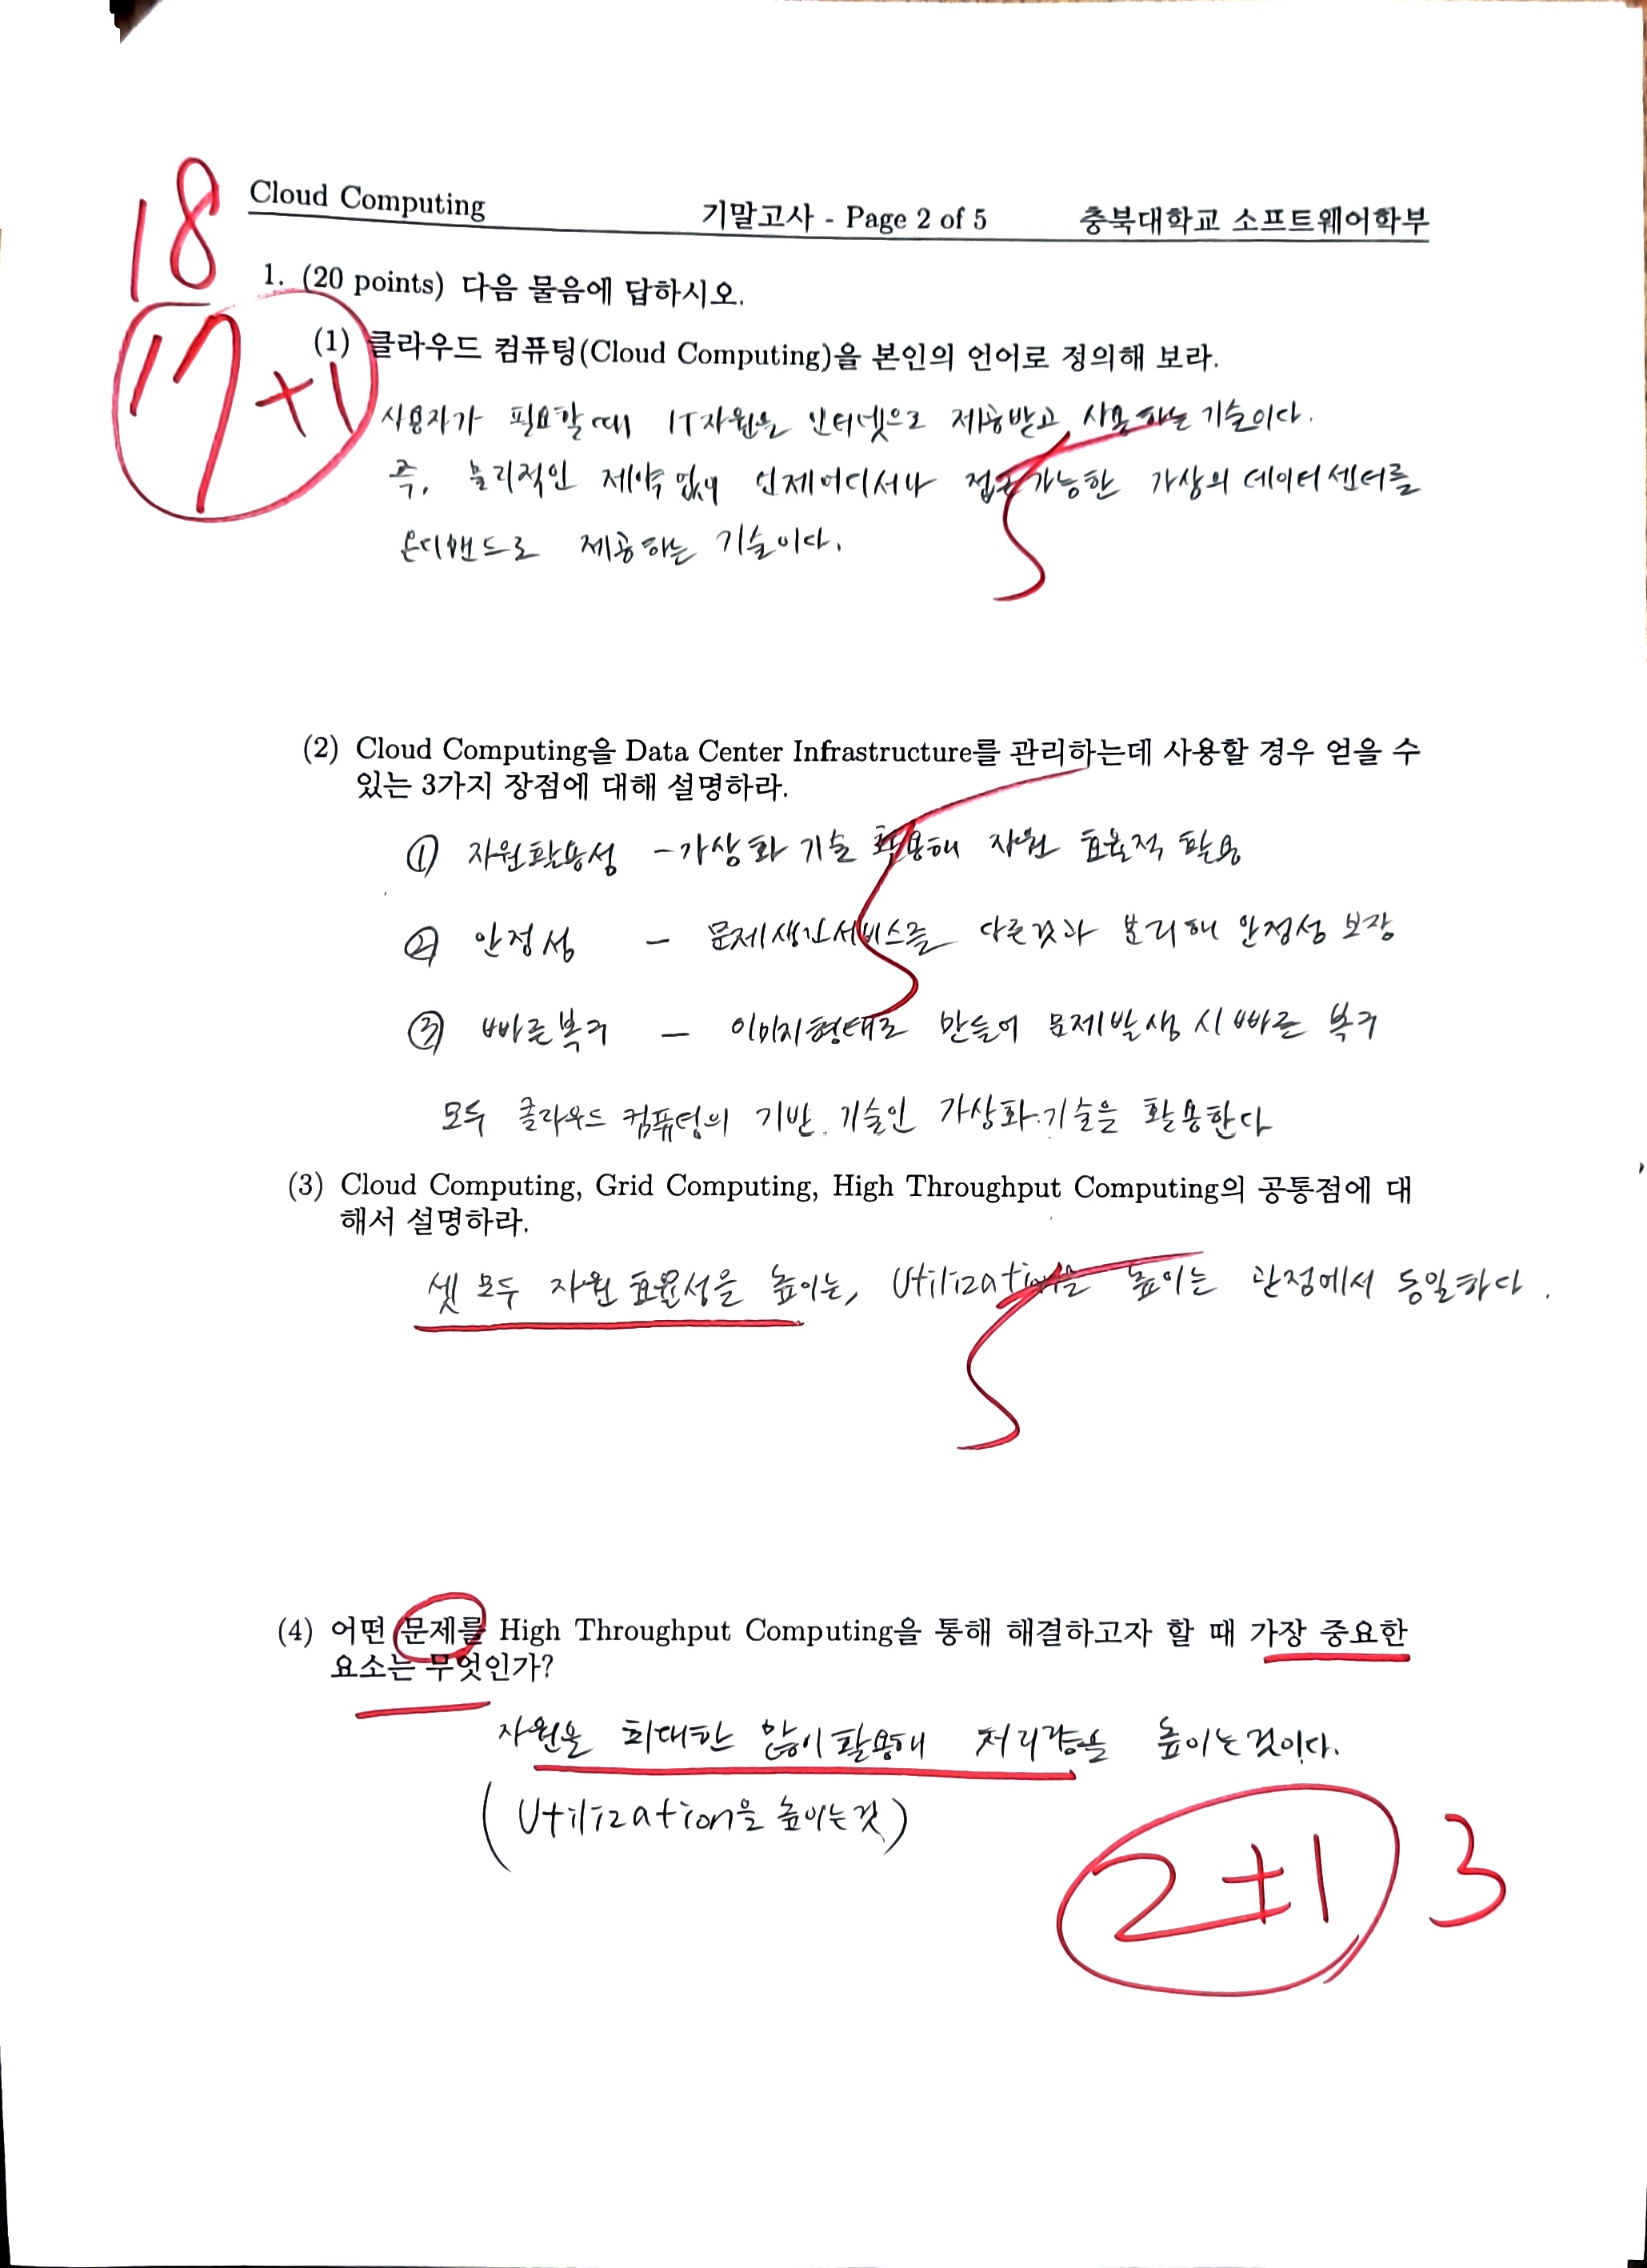 18
Cloud Computing 기말고사 - Page 2 of 5 충북대학교 소프트웨어학부
1. (20 points) 다음 물음에 답하시오.
17+1
(1) 클라우드 컴퓨팅(Cloud Computing)을 본인의 언어로 정의해 보라.
사용자가 필요할 때 IT자원을 인터넷으로 제공받고 사용하는 기술이다.
즉, 물리적인 제약 없이 언제어디서나 접근가능한 가상의 데이터센터를
온디맨드로 제공하는 기술이다.
5
(2) Cloud Computing을 Data Center Infrastructure를 관리하는데 사용할 경우 얻을 수
있는 3가지 장점에 대해 설명하라.
① 자원활용성 - 가상화 기술 활용해 자원 효율적 활용
② 안정성 - 문제생긴서비스를 다른것과 분리해 안정성 보장
③ 빠른복구 - 이미지형태로 만들어 문제발생 시 빠른 복구
5
모두 클라우드 컴퓨팅의 기반 기술인 가상화 기술을 활용한다
(3) Cloud Computing, Grid Computing, High Throughput Computing의 공통점에 대
해서 설명하라.
셋 모두 자원 효율성을 높이는, Utilization을 높이는 관점에서 동일하다.
5
(4) 어떤 문제를 High Throughput Computing을 통해 해결하고자 할 때 가장 중요한
요소는 무엇인가?
자원을 최대한 많이 활용해 처리량을 높이는것이다.
(Utilization을 높이는것)
2+1 3